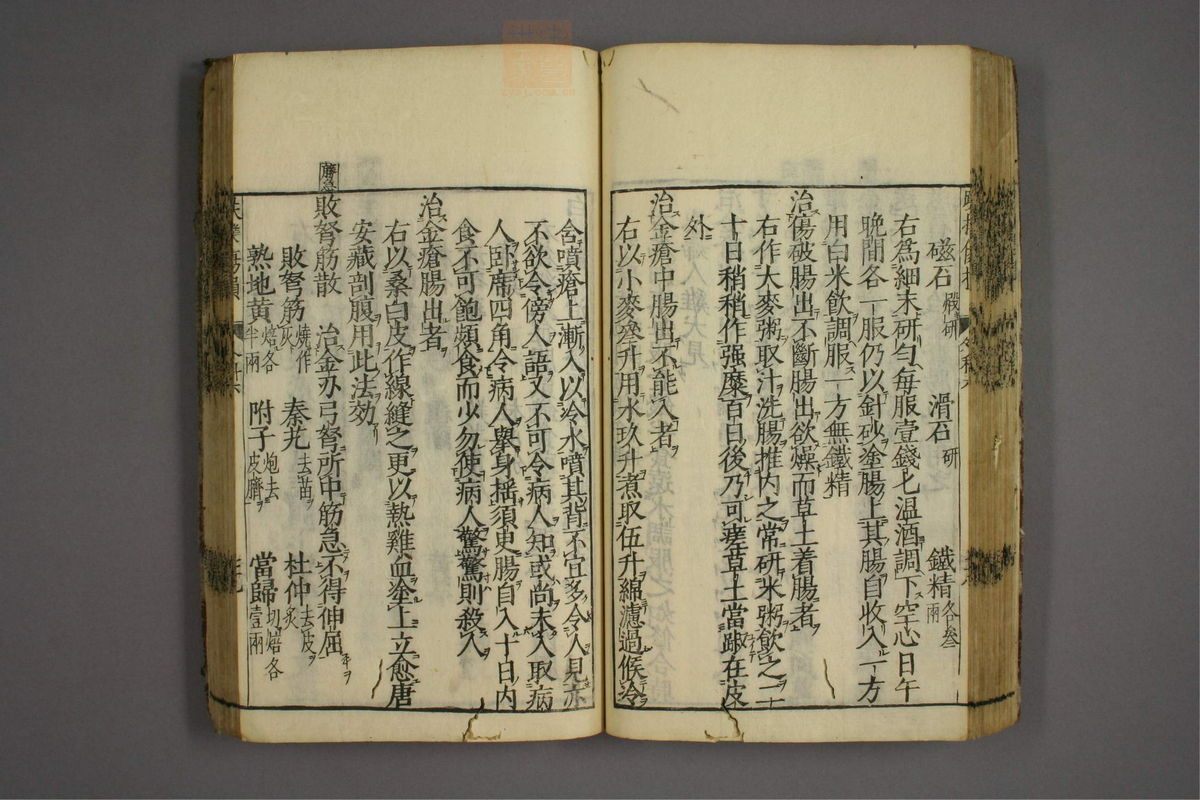 磁石煆研 滑石研 鐵精各叁兩
右爲細末研勻每服壹錢匕溫酒調下空心日午
晩間各一服仍以針砂塗腸上其腸自收入一方
用白米飲調服一方無鐵精
治傷破腸出不斷腸出欲燥而草土着腸者
右作大麥粥取汁洗腸推内之常研米粥飲之二十
日稍稍作强糜百日後乃可瘥草土當 在皮
外
治金瘡中腸出不能入者
右以小麥 升用水玖升煮取伍升綿濾過候冷
含噴瘡上漸入以冷水噴其背不宜多令人見亦
不欲令傍人語又不可令病人知或尚未入取病
人卧席四角令病人舉身揺須臾腸自入十日内
食不可飽頻食而少勿使病人驚驚則殺人
治金瘡腸出者
右以桑白皮作線縫之更以熱雞血塗上立愈唐
安藏剖腹用此法効
敗弩筋散 治金刅弓弩所中筋急不得伸屈
敗弩筋燒作灰 秦艽去苗 杜仲去皮炙
熟地黄焙各半兩 附子炮去皮臍 當歸切焙各壹兩